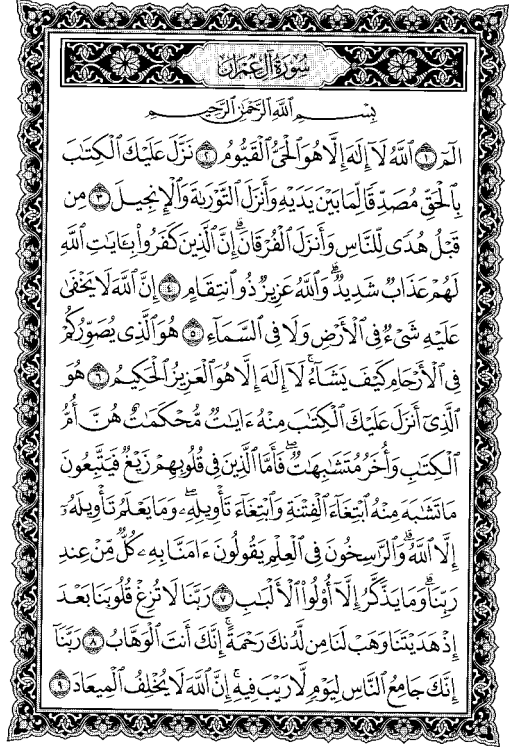 سُورَةُ آلِ عِمْرَان
بِسْمِ ٱللَّهِ ٱلرَّحْمَٰنِ ٱلرَّحِيمِ
الٓمٓ ١ ٱللَّهُ لَآ إِلَٰهَ إِلَّا هُوَ ٱلْحَىُّ ٱلْقَيُّومُ ٢ نَزَّلَ عَلَيْكَ ٱلْكِتَٰبَ
بِٱلْحَقِّ مُصَدِّقًا لِّمَا بَيْنَ يَدَيْهِ وَأَنزَلَ ٱلتَّوْرَىٰةَ وَٱلْإِنجِيلَ ٣ مِن
قَبْلُ هُدًى لِّلنَّاسِ وَأَنزَلَ ٱلْفُرْقَانَ ۗ إِنَّ ٱلَّذِينَ كَفَرُوا۟ بِـَٔايَٰتِ ٱللَّهِ
لَهُمْ عَذَابٌ شَدِيدٌ ۗ وَٱللَّهُ عَزِيزٌ ذُو ٱنتِقَامٍ ٤ إِنَّ ٱللَّهَ لَا يَخْفَىٰ
عَلَيْهِ شَىْءٌ فِى ٱلْأَرْضِ وَلَا فِى ٱلسَّمَآءِ ٥ هُوَ ٱلَّذِى يُصَوِّرُكُمْ
فِى ٱلْأَرْحَامِ كَيْفَ يَشَآءُ ۚ لَآ إِلَٰهَ إِلَّا هُوَ ٱلْعَزِيزُ ٱلْحَكِيمُ ٦ هُوَ
ٱلَّذِىٓ أَنزَلَ عَلَيْكَ ٱلْكِتَٰبَ مِنْهُ ءَايَٰتٌ مُّحْكَمَٰتٌ هُنَّ أُمُّ
ٱلْكِتَٰبِ وَأُخَرُ مُتَشَٰبِهَٰتٌ ۖ فَأَمَّا ٱلَّذِينَ فِى قُلُوبِهِمْ زَيْغٌ فَيَتَّبِعُونَ
مَا تَشَٰبَهَ مِنْهُ ٱبْتِغَآءَ ٱلْفِتْنَةِ وَٱبْتِغَآءَ تَأْوِيلِهِۦ ۗ وَمَا يَعْلَمُ تَأْوِيلَهُۥٓ
إِلَّا ٱللَّهُ ۗ وَٱلرَّٰسِخُونَ فِى ٱلْعِلْمِ يَقُولُونَ ءَامَنَّا بِهِۦ كُلٌّ مِّنْ عِندِ
رَبِّنَا ۗ وَمَا يَذَّكَّرُ إِلَّآ أُو۟لُوا۟ ٱلْأَلْبَٰبِ ٧ رَبَّنَا لَا تُزِغْ قُلُوبَنَا بَعْدَ
إِذْ هَدَيْتَنَا وَهَبْ لَنَا مِن لَّدُنكَ رَحْمَةً ۚ إِنَّكَ أَنتَ ٱلْوَهَّابُ ٨ رَبَّنَآ
إِنَّكَ جَامِعُ ٱلنَّاسِ لِيَوْمٍ لَّا رَيْبَ فِيهِ ۚ إِنَّ ٱللَّهَ لَا يُخْلِفُ ٱلْمِيعَادَ ٩